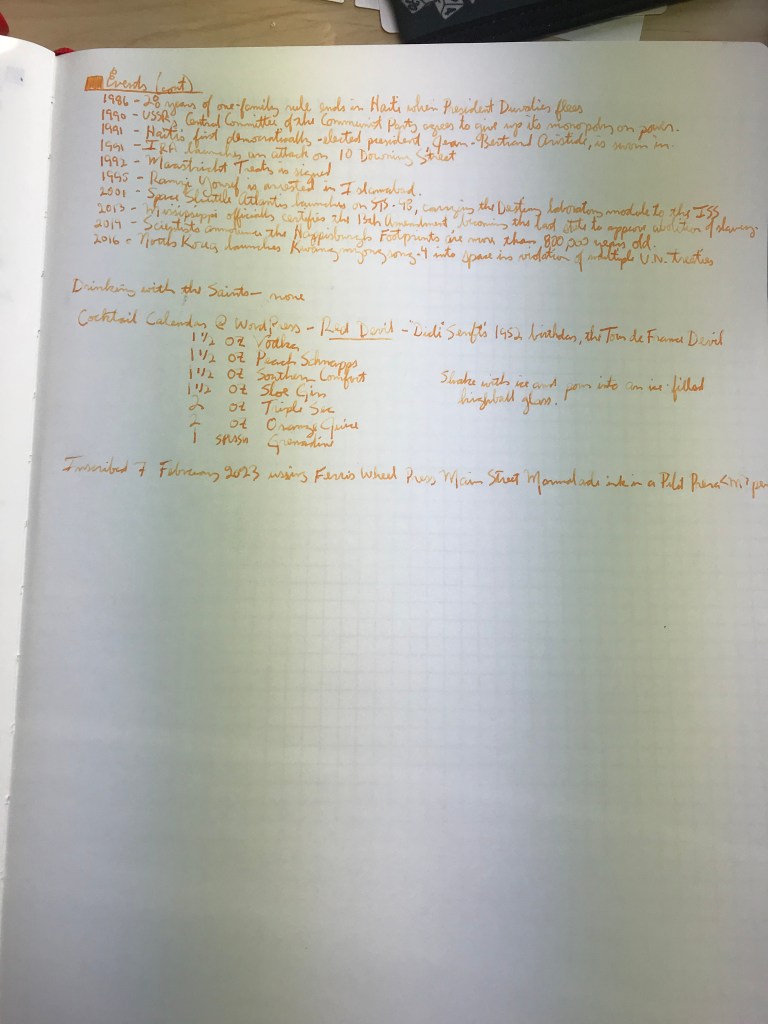 Events (cont)
1986 - 28 years of one-family rule ends in Haiti when President Duvalier flees
1990 - USSR's Central Committee of the Communist Party agrees to give up its monopoly on power.
1991 - Haiti's first democratically-elected president Jean-Bertrand Aristide, is sworn in.
1991 - IRA launches an attack on 10 Downing Street
1992 - Maastricht Treaty is signed
1995 - Ramzi Yousef is arrested in Islamabad.
2001 - Space Shuttle Atlantis launches on STS-98, carrying the Destiny laboratory module to the ISS
2013 - Mississippi officially certifies the 13th Amendment, becoming the last state to approve abolition of slavery.
2014 - Scientists announce the Happisburgh Footprints are more than 800,000 years old.
2016 - North Korea launches Kwangmyongsong-4 into space in violation of multiple U.N. treaties
Drinking with the Saints - none
Cocktail Calendar @ WordPress - Red Devil - Didi Senft's 1952 birthday, the Tour de France Devil
1 1/2 oz Vodka
1 1/2 oz Peach Schnapps
1 1/2 oz Southern Comfort
1 1/2 oz Sloe Gin
2 oz Triple Sec
2 oz Orange Juice
1 splash Grenadine
Shake with ice and pour into an ice-filled
highball glass.
Inscribed 7 February 2023 using Ferris Wheel Press Main Street Marmalade ink in a Pilot Prera <M> pen